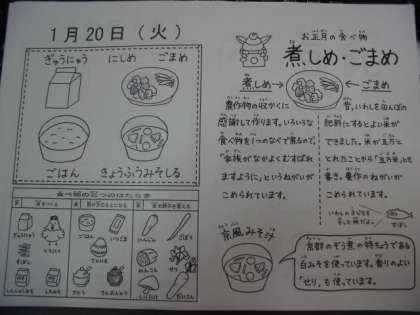 1月20日（火）
ぎゅうにゅう　にしめ　ごまめ
ごはん　きょうふうみそしる
お正月の食べ物
煮しめ・ごまめ
煮しめ
ごまめ
農作物の収かくに
感謝して作ります。いろいろな
食べ物を1つのなべで煮るので、
「家族がなかよくむすばれ
ますように」というねがいが
こめられています。
昔、いわしを田んぼの
肥料にするとよい米が
できました。米が五万に
とれたことから「五万米」とも
書き、豊作のねがいが
こめられています。
京風みそ汁
京都のぞう煮の特ちょうである
白みそを使っています。香りのよい
「せり」も使っています。
食べ物の三つのはたらき
ぎゅうにゅう
とりにく
ごはん
さといも
さとう
にんじん
ごぼう
れんこん
せり
しいたけ
だいこん